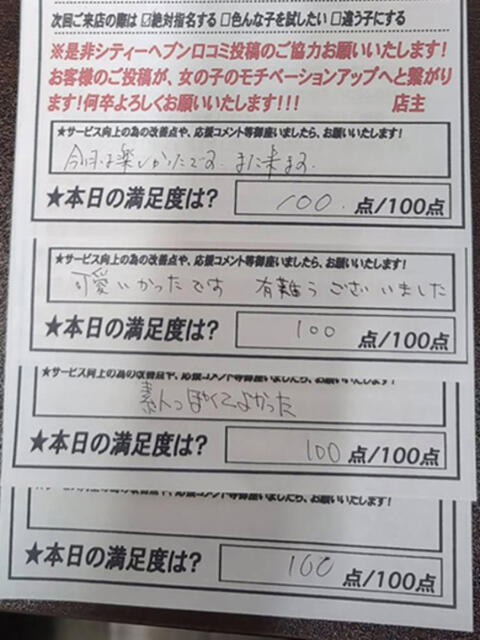 次回ご来店の際は ☑絶対指名する □色んな子を試したい □違う子にする
※是非シティーヘブン口コミ投稿のご協力お願いいたします!
お客様のご投稿が、女の子のモチベーションアップへと繋がり
ます!何卒よろしくお願いいたします!!! 店主
★サービス向上の為の改善点や、応援コメント等御座いましたら、お願いいたします!
今日は楽しかったです。また来ます。
★本日の満足度は? 100. 点/100点
★サービス向上の為の改善点や、応援コメント等御座いましたら、お願いいたします!
可愛いかったです 有難うございました
★本日の満足度は? 100 点/100点
★サービス向上の為の改善点や、応援コメント等御座いましたら、お願いいたします!
素人っぽくてよかった
★本日の満足度は? 100 点/100点
★サービス向上の為の改善点や、応援コメント等御座いましたら、お願いいたします!
★本日の満足度は? 100 点/100点